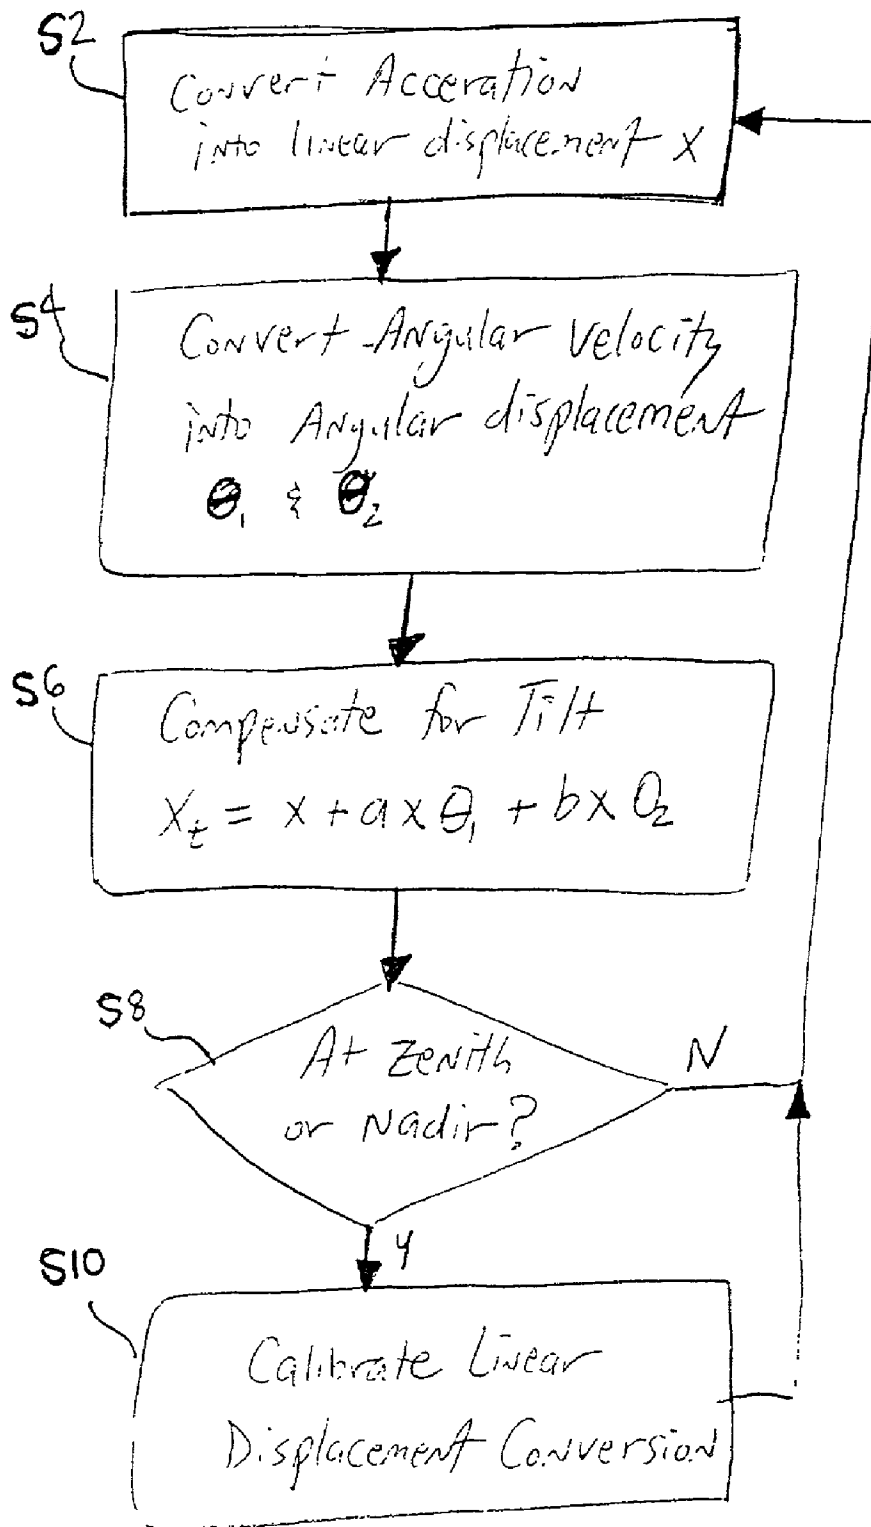 S2
Convert Acceration
into linear displacement X
S4
Convert Angular Velocity
into Angular displacement
θ₁ & θ₂
S6
Compensate for Tilt
Xₜ = x + a x θ₁ + b x θ₂
S8
At zenith
or Nadir?
N
Y
S10
Calibrate Linear
Displacement Conversion